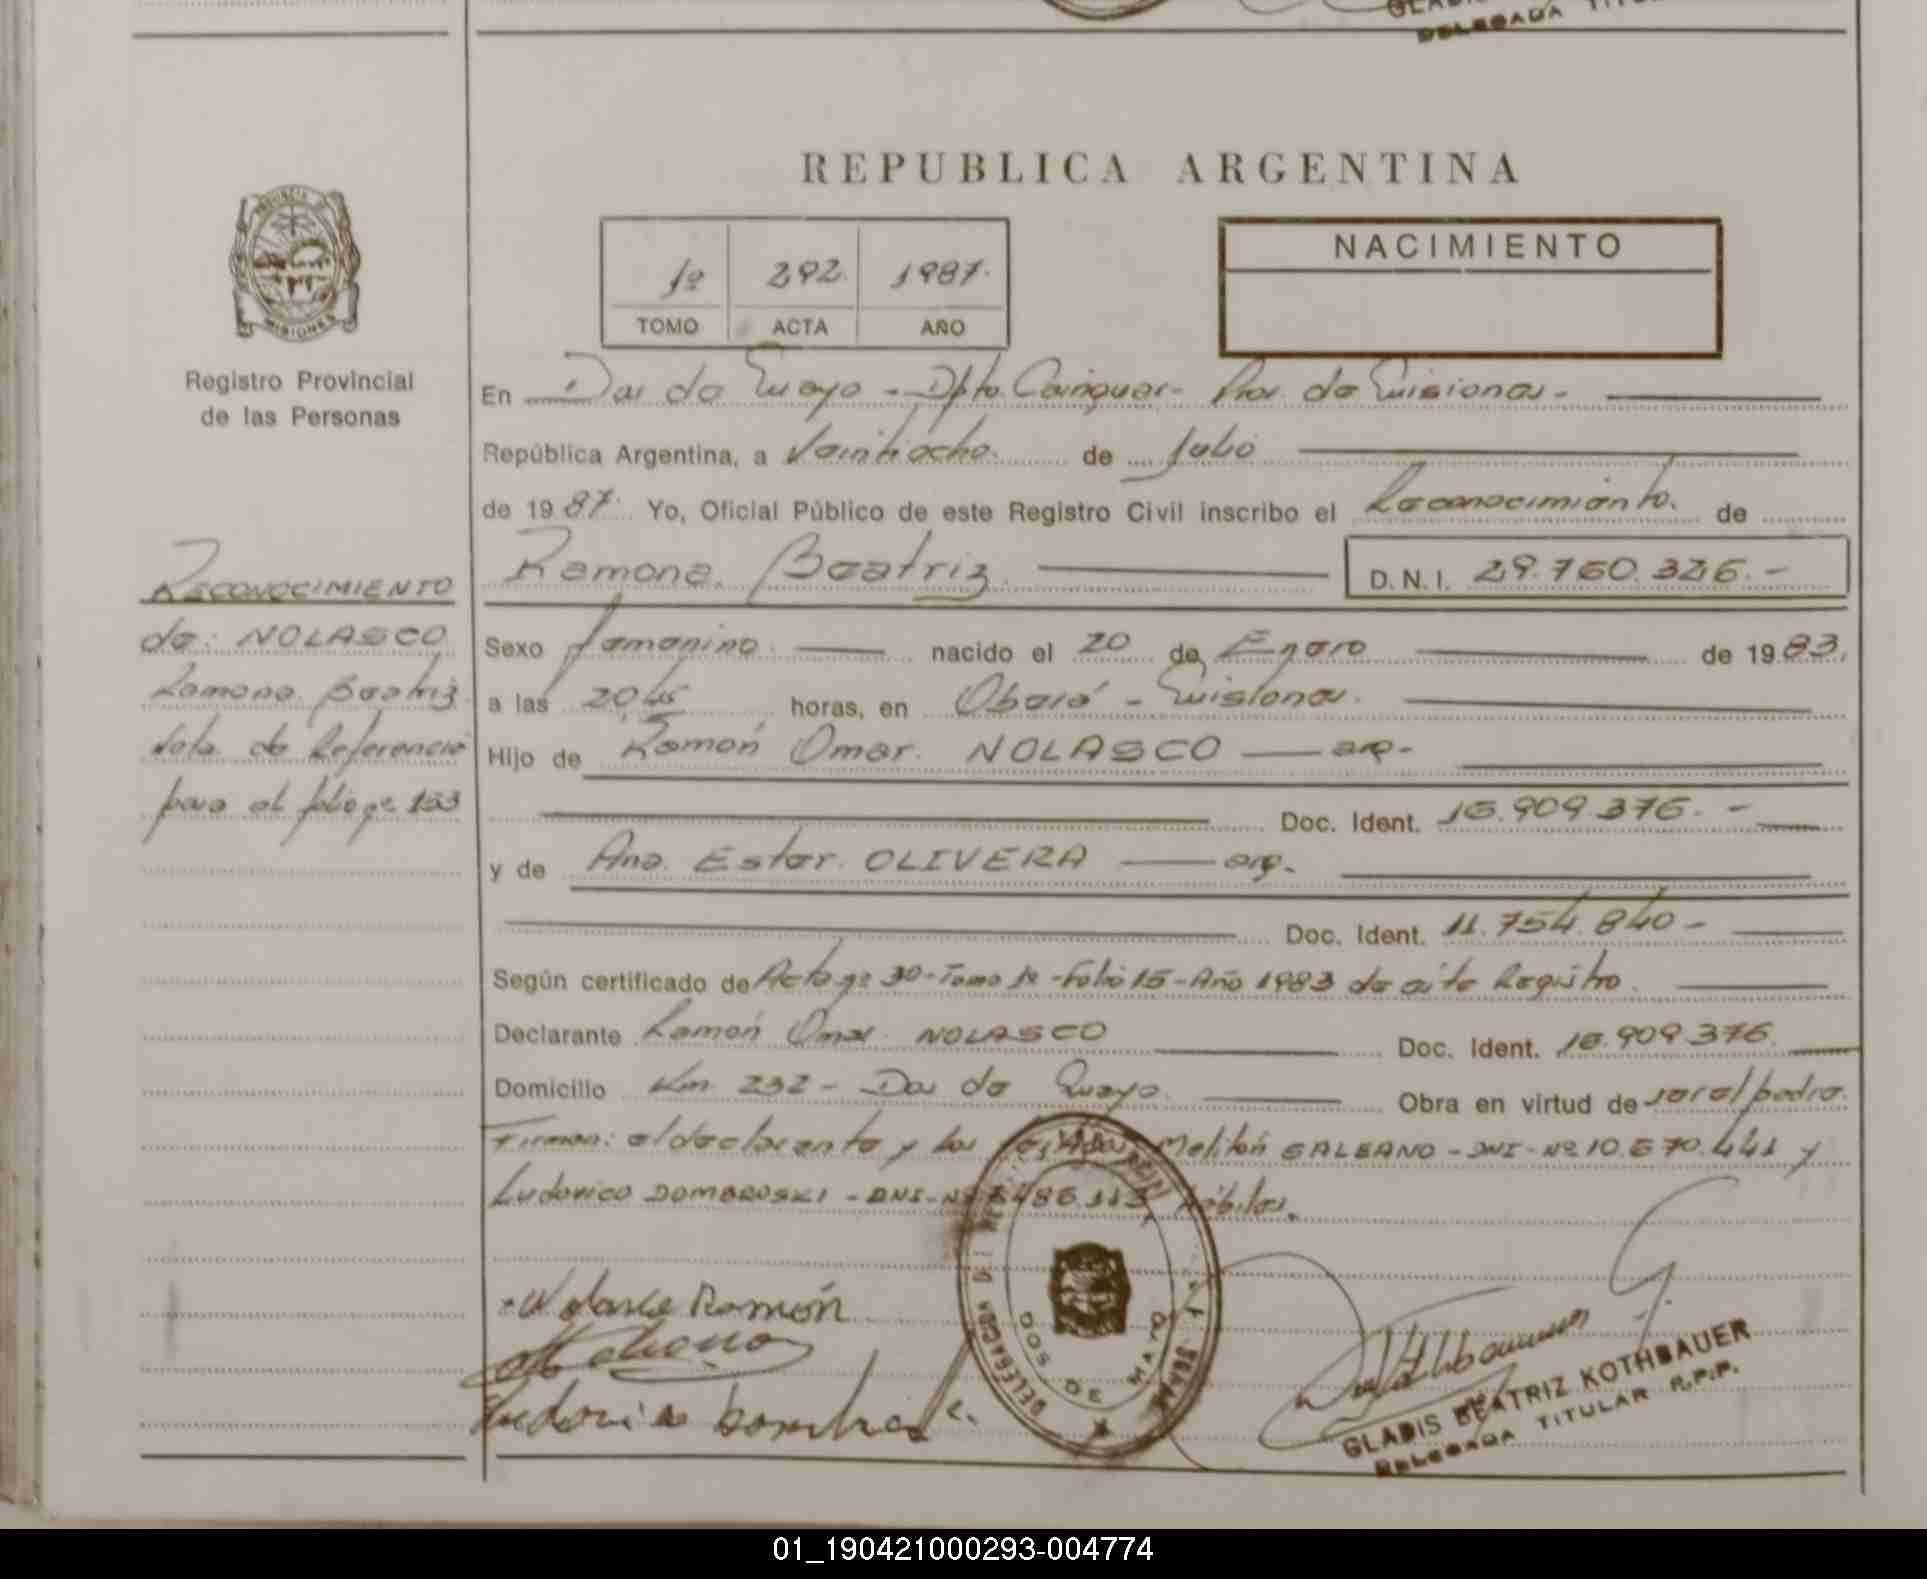 DELEGADA TITU
REPUBLICA ARGENTINA
PROVINCIA DE
MISIONES
1º 292. 1987.
TOMO ACTA AÑO
NACIMIENTO
Registro Provincial
de las Personas
En Dos de Mayo - Dpto. Cainguas - Prov. de Misiones -
República Argentina, a Veintiocho de Julio
de 1987. Yo, Oficial Público de este Registro Civil inscribo el Reconocimiento. de
Ramona Beatriz D.N.I. 29.760.326.-
RECONOCIMIENTO
de: NOLASCO
Ramona Beatriz
Nota de Referencia
para el folio nº 153
Sexo femenino nacido el 20 de Enero de 1983,
a las 20,45 horas, en Oberá - Misiones.
Hijo de Ramón Omar NOLASCO — arg-
Doc. Ident. 16.909.376.-
y de Ana Ester OLIVERA — arg.
Doc. Ident. 11.754.840-
Según certificado de Acta nº 30-Tomo 1º-Folio 15-Año 1983 de este Registro.
Declarante Ramón Omar NOLASCO Doc. Ident. 16.909.376.
Domicilio Km. 232 - Dos de Mayo. Obra en virtud de ser el padre.
Firman: el declarante y los testigos Melitón GALEANO - DNI - Nº 10.670.441 y
Ludovico DOMBROSKI - DNI - Nº 486.113, hábiles.
Nolasco Ramón
DELEGACION
DOS DE MAYO
GLADIS BEATRIZ KOTHBAUER
DELEGADA TITULAR R.P.P.
01_190421000293-004774